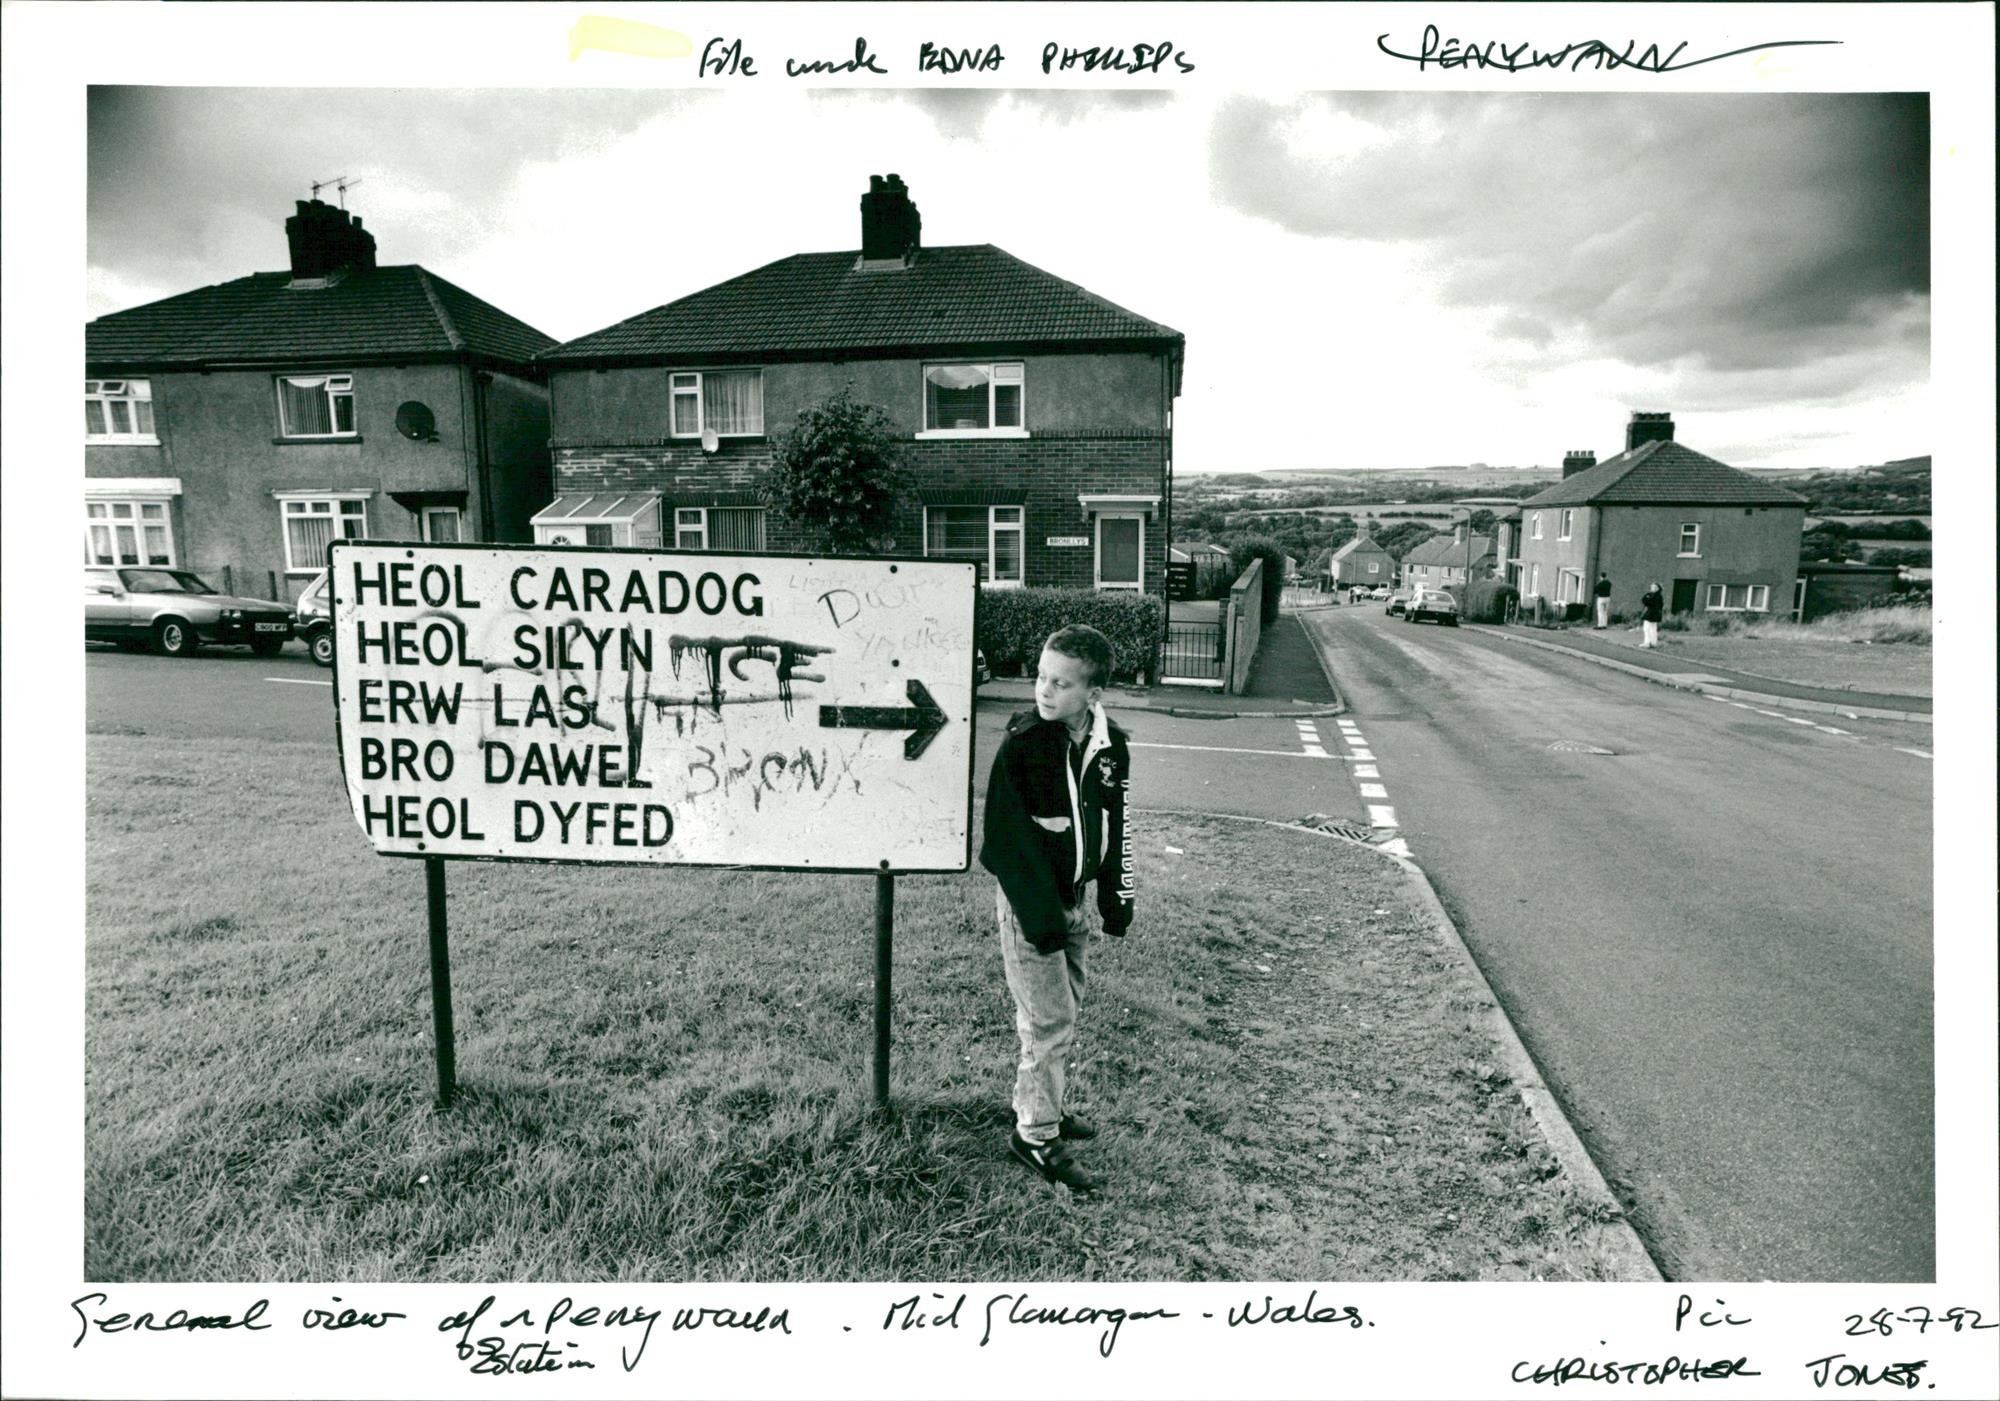 File under EDNA PHILLIPS
PENYWAUN
HEOL CARADOG
HEOL SILYN
ERW LAS
BRO DAWEL
HEOL DYFED
YANKEE
BRONX
BRONLLYS
General view of Penywaun . Mid Glamorgan - Wales.
Estate in
Pic 28-7-92
CHRISTOPHER JONES.